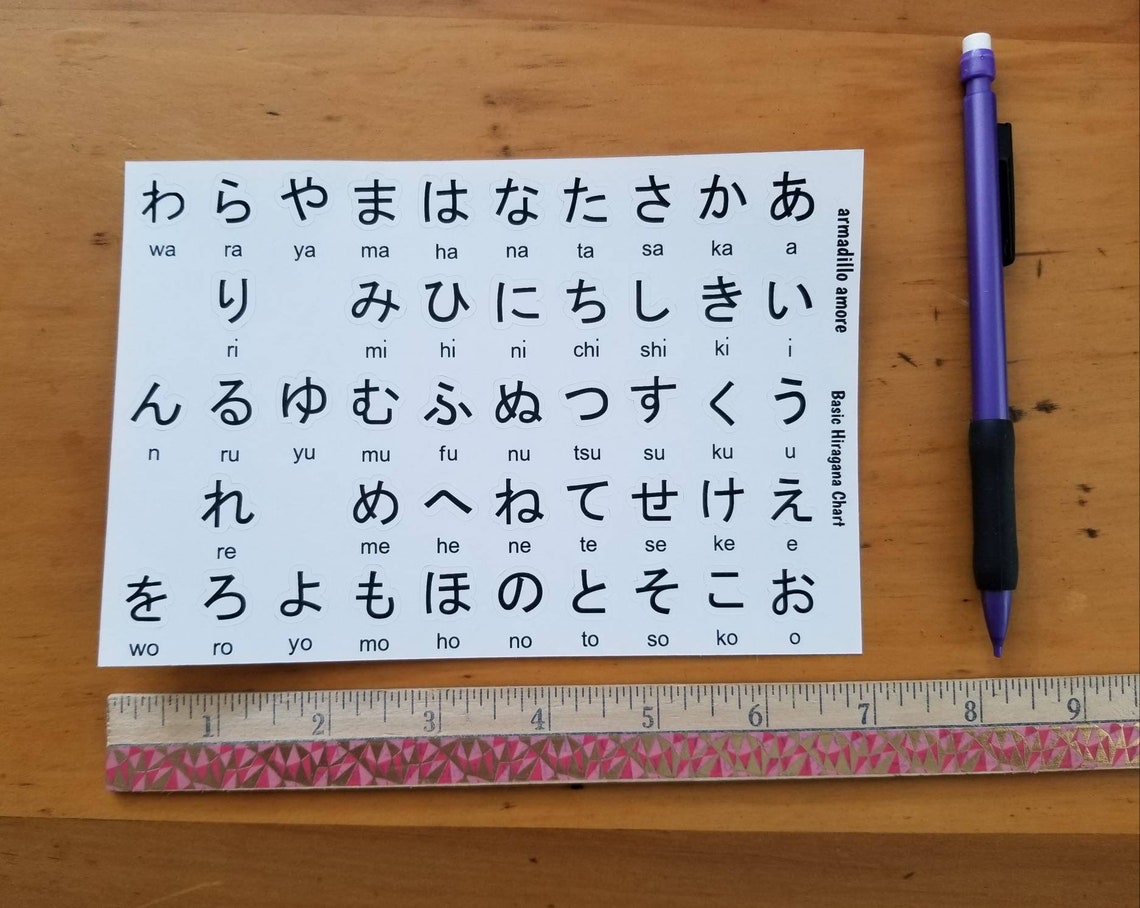 わ ら や ま は な た さ か あ
wa ra ya ma ha na ta sa ka a
り み ひ に ち し き い
ri mi hi ni chi shi ki i
ん る ゆ む ふ ぬ つ す く う
n ru yu mu fu nu tsu su ku u
れ め へ ね て せ け え
re me he ne te se ke e
を ろ よ も ほ の と そ こ お
wo ro yo mo ho no to so ko o
armadillo amore
Basic Hiragana Chart
1 2 3 4 5 6 7 8 9